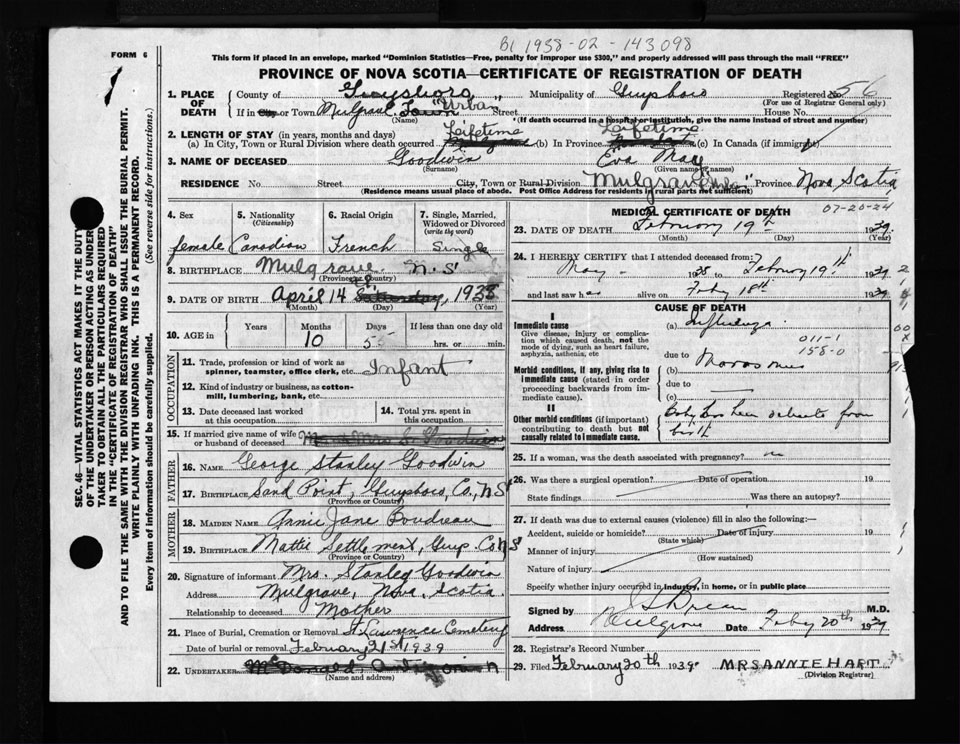 B1 1938-02-143098
FORM 6
This form if placed in an envelope, marked "Dominion Statistics—Free, penalty for improper use $300," and properly addressed will pass through the mail "FREE"
PROVINCE OF NOVA SCOTIA—CERTIFICATE OF REGISTRATION OF DEATH
1. PLACE OF DEATH
County of Guysboro Municipality of Guysboro Registered No. 56
(For use of Registrar General only)
If in City or Town Mulgrave Town "Urban" Street House No.
(Name) (If death occurred in a hospital or institution, give the name instead of street and number)
2. LENGTH OF STAY (in years, months and days)
(a) In City, Town or Rural Division where death occurred Lifetime (b) In Province Lifetime (c) In Canada (if immigrant)
3. NAME OF DECEASED Goodwin Eva May
(Surname) (Given name or names)
RESIDENCE No. Street City, Town or Rural Division Mulgrave "Urban" Province Nova Scotia
(Residence means usual place of abode. Post Office Address for residents in rural parts not sufficient)
4. Sex female
5. Nationality (Citizenship) Canadian
6. Racial Origin French
7. Single, Married, Widowed or Divorced (write thy word) Single
8. BIRTHPLACE Mulgrave N.S.
(Province or Country)
9. DATE OF BIRTH April 14 Saturday, 1938
(Month) (Day) (Year)
10. AGE in Years Months Days If less than one day old
10 5 hrs. or min.
OCCUPATION
11. Trade, profession or kind of work as spinner, teamster, office clerk, etc. Infant
12. Kind of industry or business, as cotton-mill, lumbering, bank, etc.
13. Date deceased last worked at this occupation
14. Total yrs. spent in this occupation
15. If married give name of wife or husband of deceased
FATHER
16. NAME George Stanley Goodwin
17. BIRTHPLACE Sand Point, Guysboro Co, N S
(Province or Country)
MOTHER
18. MAIDEN NAME Annie Jane Boudreau
19. BIRTHPLACE Mattie Settlement, Guy. Co N S
(Province or Country)
20. Signature of informant Mrs. Stanley Goodwin
Address Mulgrave, Nova Scotia
Relationship to deceased Mother
21. Place of Burial, Cremation or Removal St Lawrence Cemetery
Date of burial or removal February 21st 1939
22. UNDERTAKER McDonald, Antigonish
(Name and address)
MEDICAL CERTIFICATE OF DEATH
07-20-24
23. DATE OF DEATH February 19th 1939
(Month) (Day) (Year)
24. I HEREBY CERTIFY that I attended deceased from:
May 1938 to February 19th 1939
and last saw her alive on Feby 18th 1939
CAUSE OF DEATH
I
Immediate cause
Give disease, injury or complication which caused death, not the mode of dying, such as heart failure, asphyxia, asthenia, etc
(a) Influenza
011-1
158-0
due to
Morbid conditions, if any, giving rise to immediate cause (stated in order proceeding backwards from immediate cause).
(b) Marasmus
due to
(c)
II
Other morbid conditions (if important) contributing to death but not causally related to immediate cause.
Baby has been delicate from birth
25. If a woman, was the death associated with pregnancy? no
26. Was there a surgical operation? Date of operation 19
State findings Was there an autopsy?
27. If death was due to external causes (violence) fill in also the following:—
Accident, suicide or homicide? Date of injury 19
(State which)
Manner of injury
(How sustained)
Nature of injury
Specify whether injury occurred in industry, in home, or in public place
Signed by M.D.
Address Mulgrave Date Feby 20th 1939
28. Registrar's Record Number
29. Filed February 20th 1939. MRS ANNIE HART
(Division Registrar)
SEC. 46—VITAL STATISTICS ACT MAKES IT THE DUTY
OF THE UNDERTAKER OR PERSON ACTING AS UNDERTAKER
TO OBTAIN ALL THE PARTICULARS REQUIRED
IN THE "CERTIFICATE OF REGISTRATION OF DEATH"
AND TO FILE THE SAME WITH THE DIVISION REGISTRAR WHO SHALL ISSUE THE BURIAL PERMIT.
WRITE PLAINLY WITH UNFADING INK. THIS IS A PERMANENT RECORD.
Every item of information should be carefully supplied. (See reverse side for instructions.)